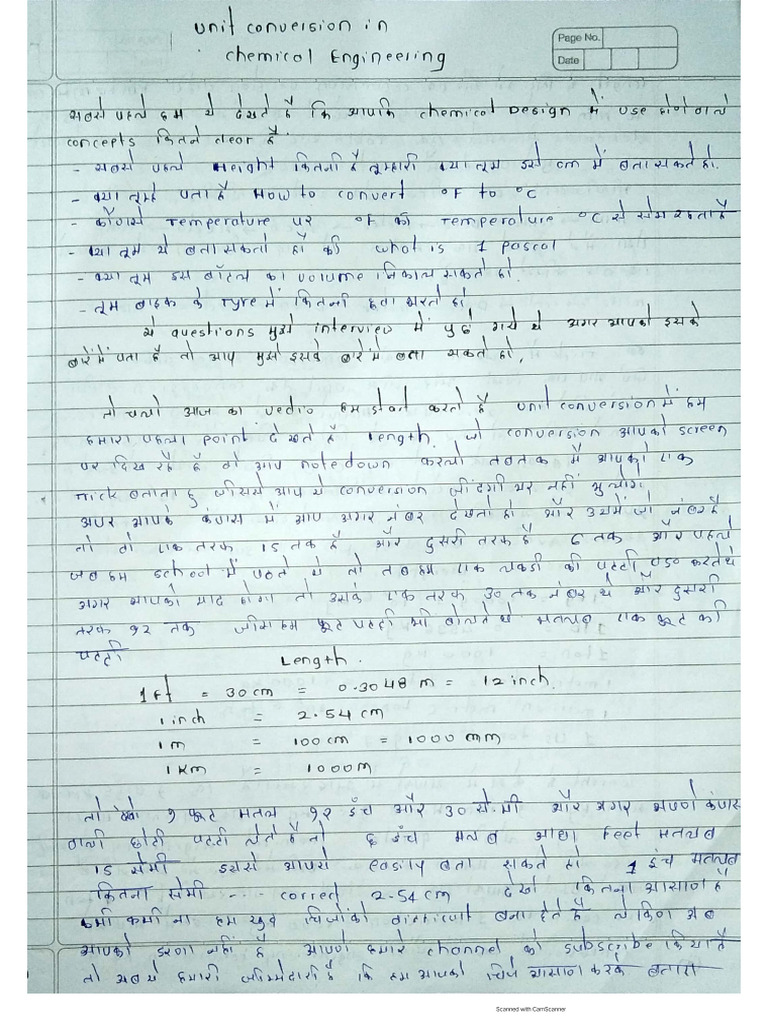 unit conversion in
chemical Engineering
Page No.
Date
सबसे पहले हम ये देखते है कि आपके chemical Design में use होणे वाले
concepts कितने clear है.
- सबसे पहले Height कितनी है तूम्हारी क्या तूम इसे cm में बता सकते हो.
- क्या तूम्हे पता है How to convert °F to °C
- कौणसे Temperature पर °F का Temperature °C से सेम रहता है
- क्या तूम ये बता सकतो हो की what is 1 pascal
- क्या तूम इस बॉटल का volume निकाल सकते हो.
- तूम बाइक के Tyre में कितनी हवा भरते हो
ये questions मुझे interview में पुछे गये थे अगर आपको इसके
बारें में पता है तो आप मुझे इसके बारे मे बता सकते हो.
तो चलो आज का vedio हम start करतो है unit conversion में हम
हमारा पहला point देखते है Length. जो conversion आपको screen
पर दिख रहे है वो आप note down करलो तबतक मै आपको एक
trick बताता हु जीससे आप ये conversion जींदगी भर नहीं भुलोगे.
अगर आपके कंपास में आप अगर नंबर देखतो हो और उसमें जो नंबर है
तो वो एक तरफ 15 तक है और दुसरी तरफ है 6 तक और पहले
जब हम school में पढते थे तो तब हम एक लकडी की पट्टी use करते थे
अगर आपको याद होगा तो उसके एक तरफ 30 तक नंबर थे और दुसरी
तरफ १२ तक जीसे हम फूट पट्टी भी बोलते थे मतलब एक फूट की
पट्टी
Length.
1 ft = 30 cm = 0.3048 m = 12 inch.
1 inch = 2.54 cm
1 m = 100 cm = 1000 mm
1 Km = 1000m
तो देखो १ फूट मतलब १२ इंच और 30 से.मी और अगर आपणे कंपास
वाली छोटी पट्टी लेते है तो ६ इंच मतलब आधा Feet मतलब
15 सेमी इससे आपसे easily बता सकते हो 1 इंच मतलब
कितना सेमी .... correct 2.54 cm देखो कितना आसाण है
कभी कभी ना हम खुद चिजोंको difficult बना देते है लेकिण अब
आपको डरणा नहीं है आपणे हमारे channel को subscribe किया है
तो अब ये हमारी जीम्मेदारी है कि हम आपको चिजे आसाण करके बताए
Scanned with CamScanner